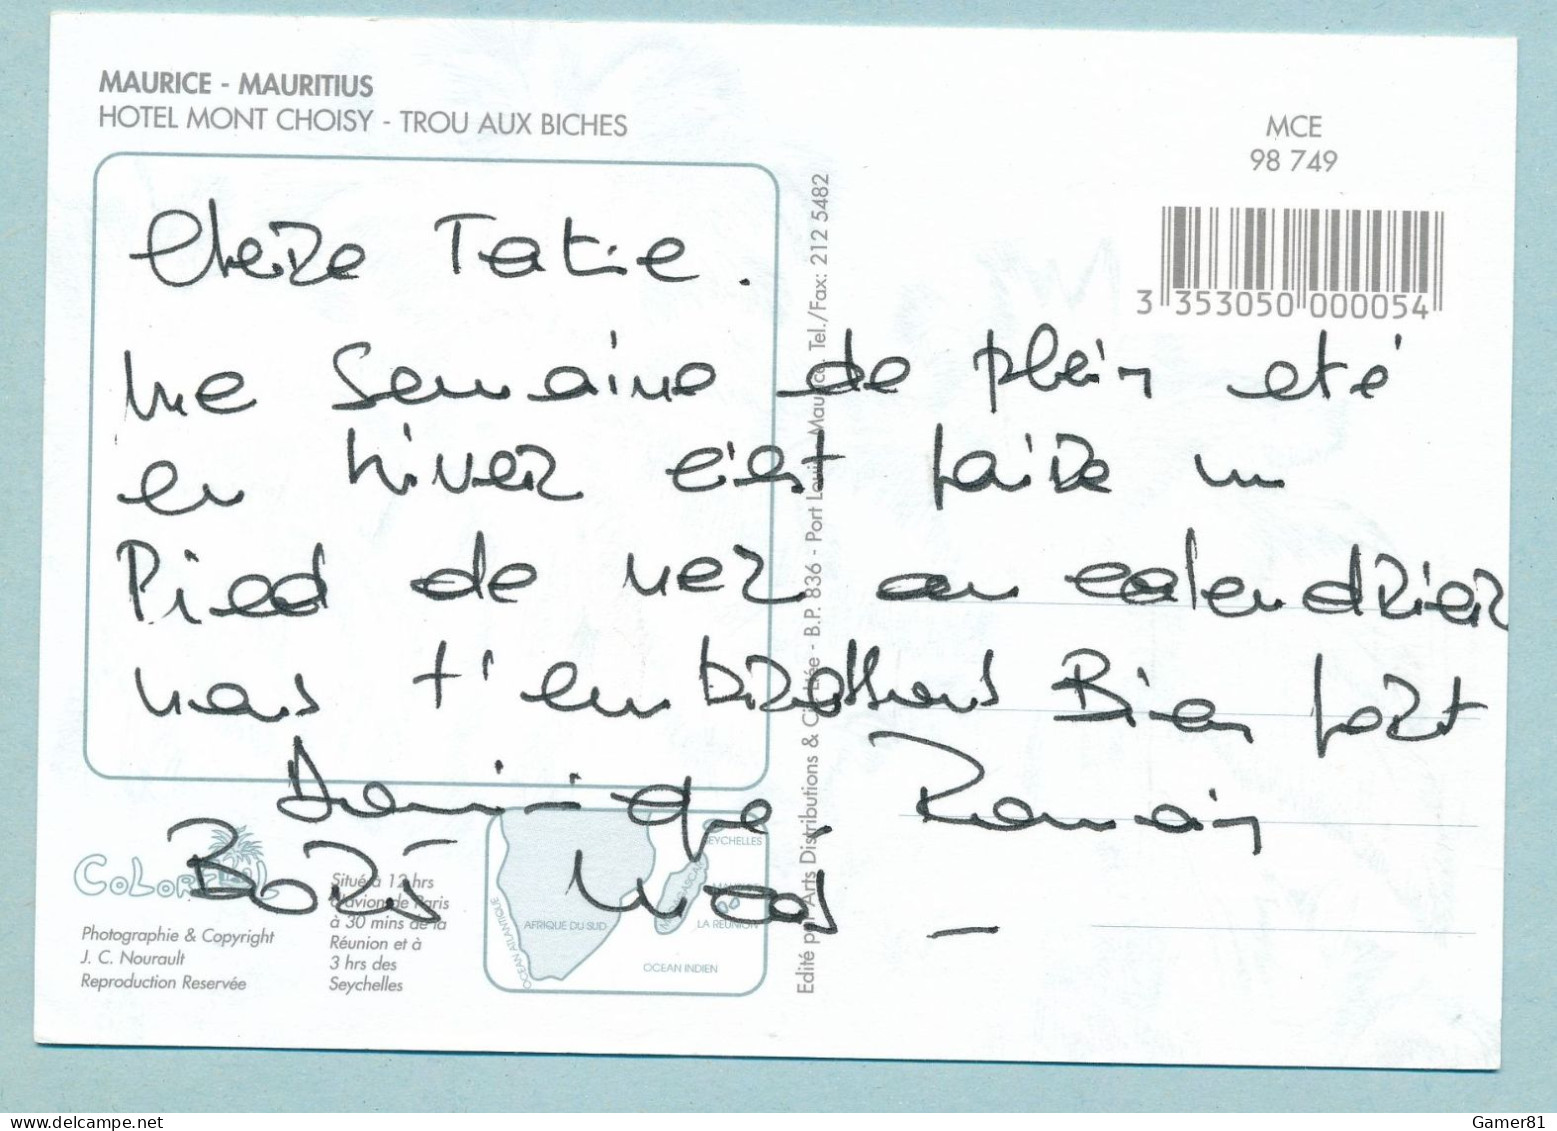 MAURICE - MAURITIUS
HOTEL MONT CHOISY - TROU AUX BICHES
MCE
98 749
3 353050 000054
Chère Tatie.
Une semaine de plein été
en hiver c'est faire un
Pied de nez au calendrier
nous t'embrassons Bien fort
Dominique, Romain
Boris
Edité par Arts Distributions & Cie Ltée - B.P. 836 - Port Louis, Maurice. Tel./Fax: 212 5482
Photographie & Copyright
J. C. Nourault
Reproduction Reservée
Situé à 12 hrs
d'avion de Paris
à 30 mins de la
Réunion et à
3 hrs des
Seychelles
SEYCHELLES
MADAGASCAR
AFRIQUE DU SUD
LA REUNION
OCEAN ATLANTIQUE
OCEAN INDIEN
Gamer81